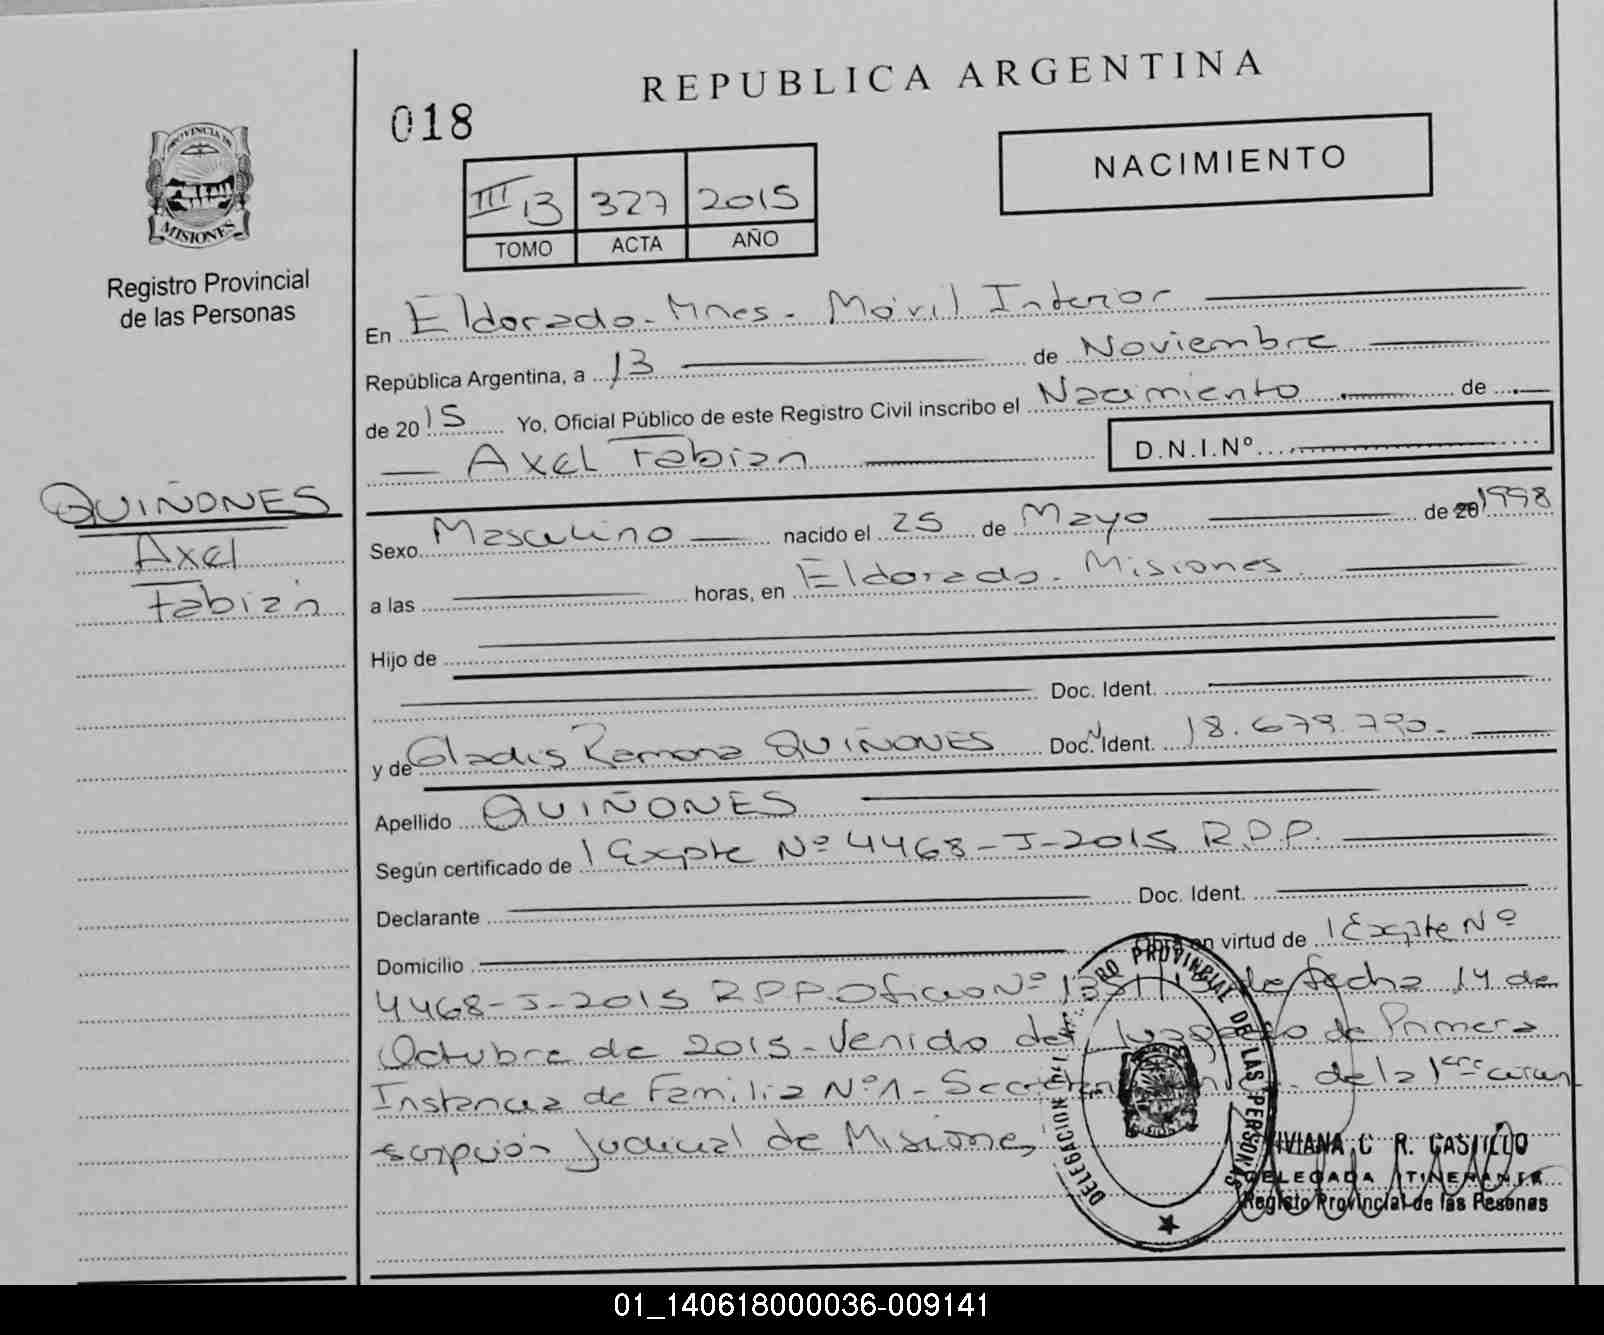 REPUBLICA ARGENTINA
018
NACIMIENTO
III 13 327 2015
TOMO ACTA AÑO
PROVINCIA DE
MISIONES
Registro Provincial
de las Personas
En Eldorado - Mnes. - Móvil Interior
República Argentina, a 13 de Noviembre
de 2015 Yo, Oficial Público de este Registro Civil inscribo el Nacimiento de
Axel Fabian
D.N.I.Nº
QUIÑONES
Axel
Fabian
Sexo Masculino nacido el 25 de Mayo de 20 1998
a las horas, en Eldorado - Misiones
Hijo de
Doc. Ident.
y de Gladis Ramona QUIÑONES Doc. Ident. 18.679.790.-
Apellido QUIÑONES
Según certificado de 1 Expte Nº 4468-J-2015 R.P.P.
Declarante Doc. Ident.
Domicilio Obra en virtud de 1 Expte Nº
4468-J-2015 R.P.P. Oficio Nº de fecha 14 de
Octubre de 2015 - Venido del Juzgado de Primera
Instancia de Familia Nº 1 - de la 1era circun
scripción Judicial de Misiones
DELEGACION PROVINCIAL DE LAS PERSONAS
VIVIANA C R. CASTILLO
DELEGADA ITINERANTE
Registo Provincial de las Pesonas
01_140618000036-009141